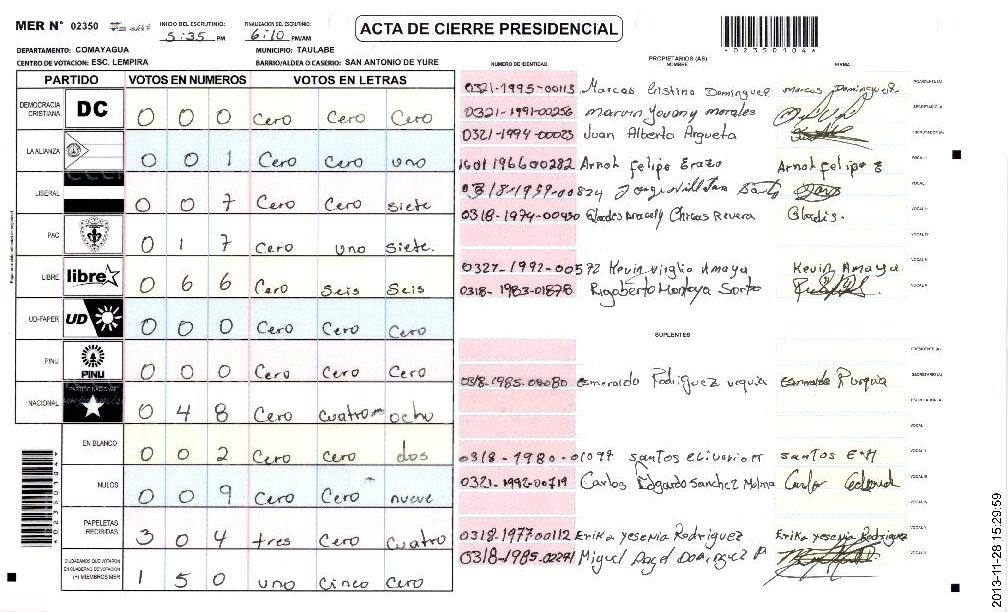 MER N° 02350
INICIO DEL ESCRUTINIO: 5:35 PM
FINALIZACION DEL ESCRUTINIO: 6:10 PM/AM
ACTA DE CIERRE PRESIDENCIAL
*02350104*
DEPARTAMENTO: COMAYAGUA
MUNICIPIO: TAULABE
CENTRO DE VOTACION: ESC. LEMPIRA
BARRIO/ALDEA O CASERIO: SAN ANTONIO DE YURE
PARTIDO VOTOS EN NUMEROS VOTOS EN LETRAS
DEMOCRACIA CRISTIANA DC 0 0 0 Cero Cero Cero
LA ALIANZA 0 0 1 Cero Cero uno
LIBERAL 0 0 7 Cero Cero siete
PAC 0 1 7 Cero uno siete.
LIBRE libre 0 6 6 Cero Seis Seis
UD-FAPER UD 0 0 0 Cero Cero Cero
PINU PINU 0 0 0 Cero Cero Cero
NACIONAL 0 4 8 Cero cuatro ocho
EN BLANCO 0 0 2 Cero Cero dos
NULOS 0 0 9 Cero Cero nueve
PAPELETAS RECIBIDAS 3 0 4 tres Cero Cuatro
CIUDADANOS QUE VOTARON EN CUADERNO DE VOTACION (+) MIEMBROS MER 1 5 0 uno Cinco Cero
PROPIETARIOS (AS)
NUMERO DE IDENTIDAD NOMBRE FIRMA
0321-1995-00113 Marcos Cristino Dominguez Marcos Dominguez. PRESIDENTE(A)
0321-1991-00256 marvin Jovany morales SECRETARIO(A)
0321-1994-00023 Juan Alberto Argueta ESCRUTADOR(A)
1601 1966 00282 Arnol felipe Erazo Arnol felipe E VOCAL I
0318-1959-00824 VOCAL
0318-1974-00430 Gladis Aracely Chicas Rivera Gladis. VOCAL
VOCAL
0327-1992-00572 Kevin Virgilio Amaya Kevin Amaya VOCAL
0318-1983-01878 Rigoberto Montoya Sorto VOCAL
SUPLENTES
PRESIDENTE (A)
0318-1985-00080 Esmeralda Rodriguez urquia SECRETARIO (A)
ESCRUTADOR (A)
VOCAL
0318-1980-01097 santos santos VOCAL
0321-1992-00719 Carlos Edgardo Sanchez Molina Carlos VOCAL
VOCAL
0318-1977 00112 Erika Yesenia Rodriguez Erika yesenia Rodriguez VOCAL
0318-1985-02291 Miguel Angel Dominguez P VOCAL
*02350104*
2013-11-28 15:29:59